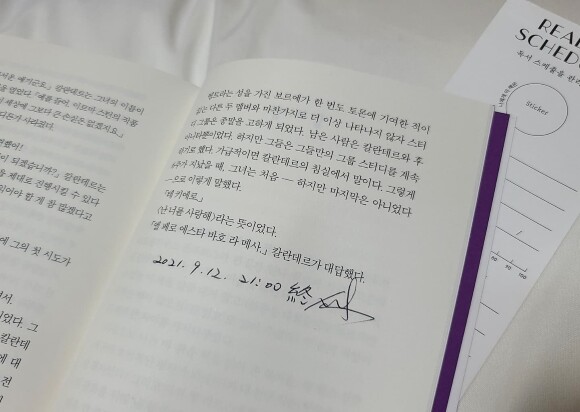 서운 얘기군요.」 칼란데르는 그녀의 이름이
다든가 사라졌다.
했어!
이 되겠습니까?」 칼란데르는
을 제대로 진행시킬 수 있다
읽어야 할 게 참 많겠다고
에 그의 첫 시도가
서.
었다. 그
칼란데
에 대
전
성을 가진 보르에가 한 번도 토론에 기여한 적이
없는 다른 두 멤버와 마찬가지로 더 이상 나타나지 않자 스터
디 그룹은 종말을 고하게 되었다. 남은 사람은 칼란데르와 후
아니타뿐이었다. 하지만 그들은 그들만의 그룹 스터디를 계속
하기로 했다. 가급적이면 칼란데르의 침실에서 말이다. 그렇게
주가 지났을 때, 그녀는 처음 — 하지만 마지막은 아니었다
—으로 이렇게 말했다.
「템 키에로.」
(난 너를 사랑해)라는 뜻이었다.
「엘 페로 에스타 바호 라 메사.」 칼란데르가 대답했다.
2021. 9. 12. 21:00 終
READ
SCHED
독서 스케줄을 관리
Sticker
/
50 100